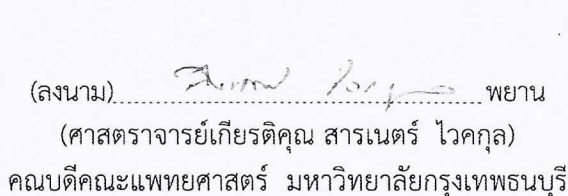 (ลงนาม)..............................พยาน
(ศาสตราจารย์เกียรติคุณ สารเนตร์ ไวคกุล)
คณบดีคณะแพทยศาสตร์ มหาวิทยาลัยกรุงเทพธนบุรี